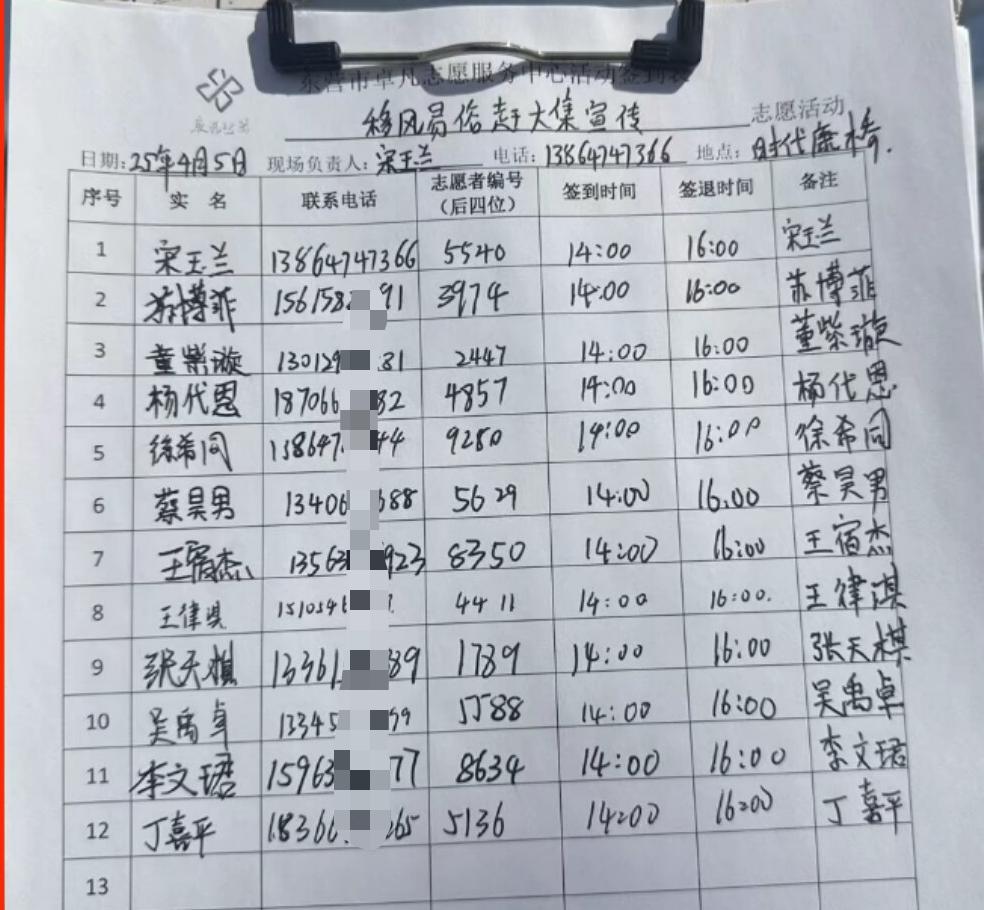 东营市卓凡志愿服务中心活动签到表
移风易俗赶大集宣传 志愿活动
日期:25年4月5日 现场负责人:宋玉兰 电话:13864747366 地点:时代康桥.
序号 实 名 联系电话 志愿者编号(后四位) 签到时间 签退时间 备注
1 宋玉兰 13864747366 5540 14:00 16:00 宋玉兰
2 苏博菲 1561582 91 3974 14:00 16:00 苏博菲
3 董紫璇 130129 81 2447 14:00 16:00 董紫璇
4 杨代恩 187066 82 4857 14:00 16:00 杨代恩
5 徐希同 138647 44 9280 14:00 16:00 徐希同
6 蔡昊男 13406 688 5629 14:00 16.00 蔡昊男
7 王宿杰 13563 923 8350 14:00 16:00 王宿杰
8 王律淇 1510546 4411 14:00 16:00. 王律淇
9 张天棋 13361 89 1789 14:00 16:00 张天棋
10 吴禹卓 13345 99 5588 14:00 16:00 吴禹卓
11 李文珺 15963 77 8634 14:00 16:00 李文珺
12 丁嘉平 18366 265 5136 14:00 16:00 丁嘉平
13